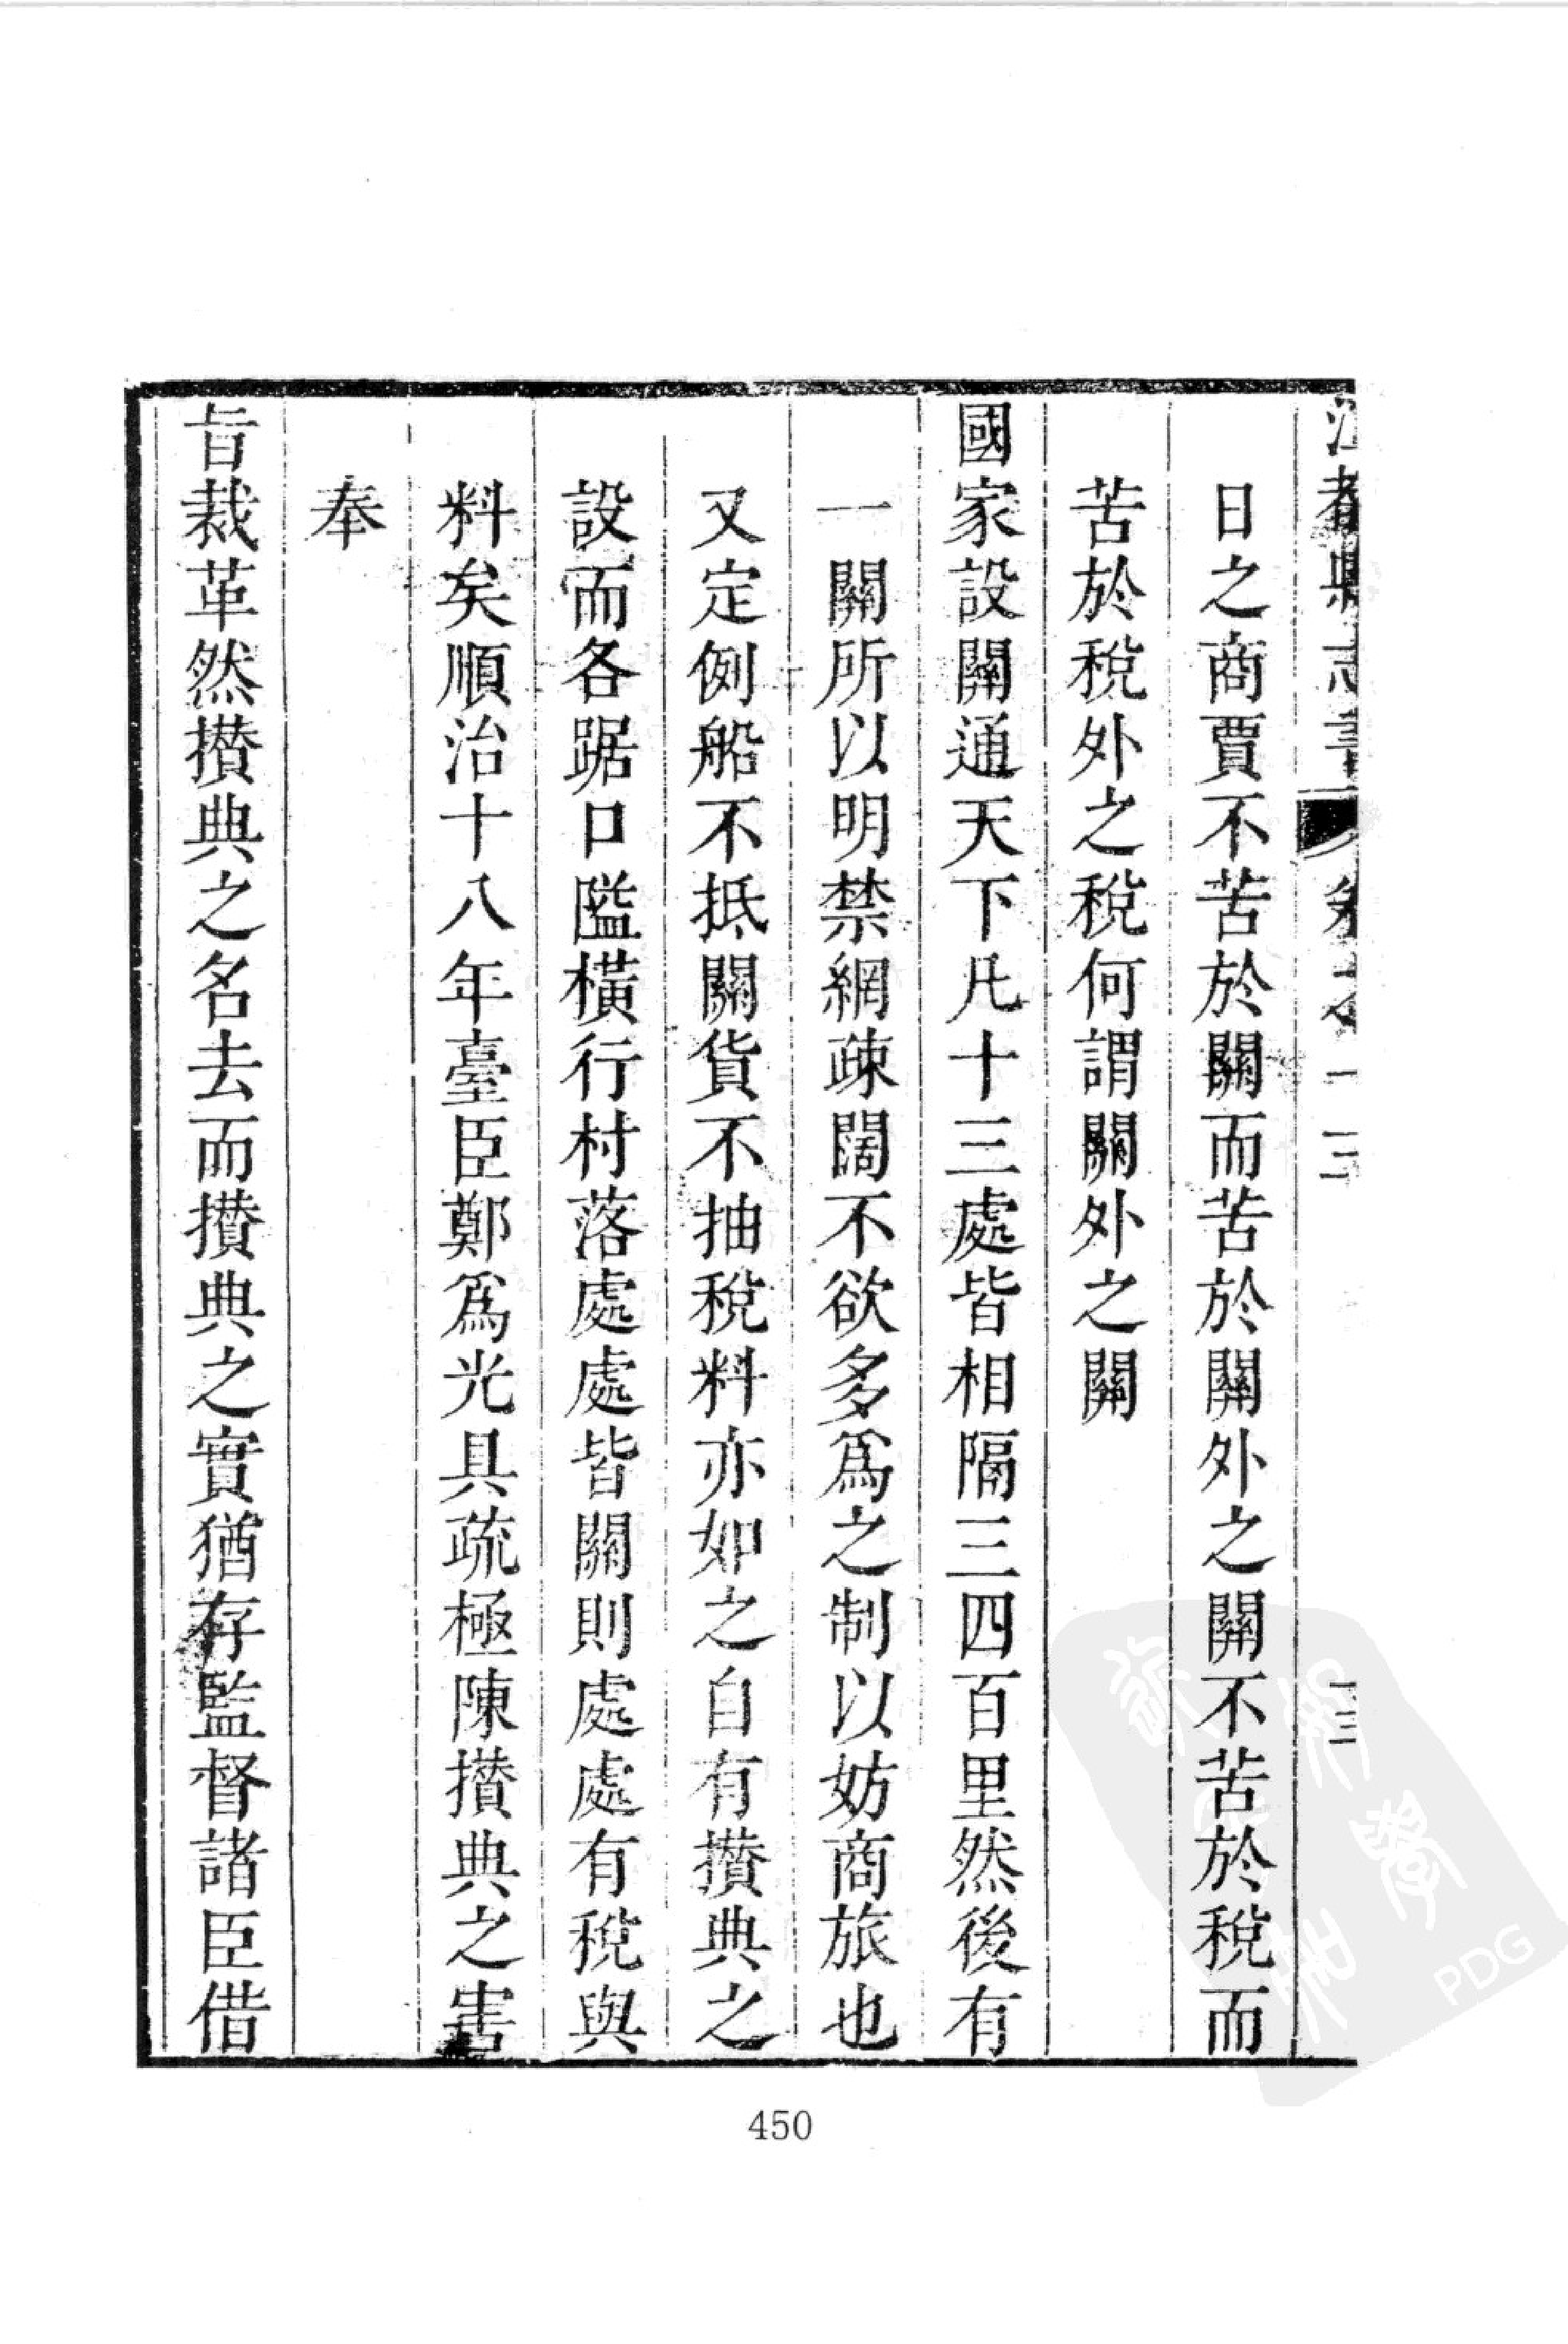 江都縣志書 卷之十三 三
日之商賈不苦於關而苦於關外之關不苦於稅而
苦於稅外之稅何謂關外之關
國家設關通天下凡十三處皆相隔三四百里然後有
一關所以明禁網疎闊不欲多為之制以妨商旅也
又定例船不抵關貨不抽稅料亦如之自有攅典之
設而各踞口隘橫行村落處處皆關則處處有稅與
料矣順治十八年臺臣鄭為光具疏極陳攅典之害
奉
旨裁革然攅典之名去而攅典之實猶存監督諸臣借
450
PDG